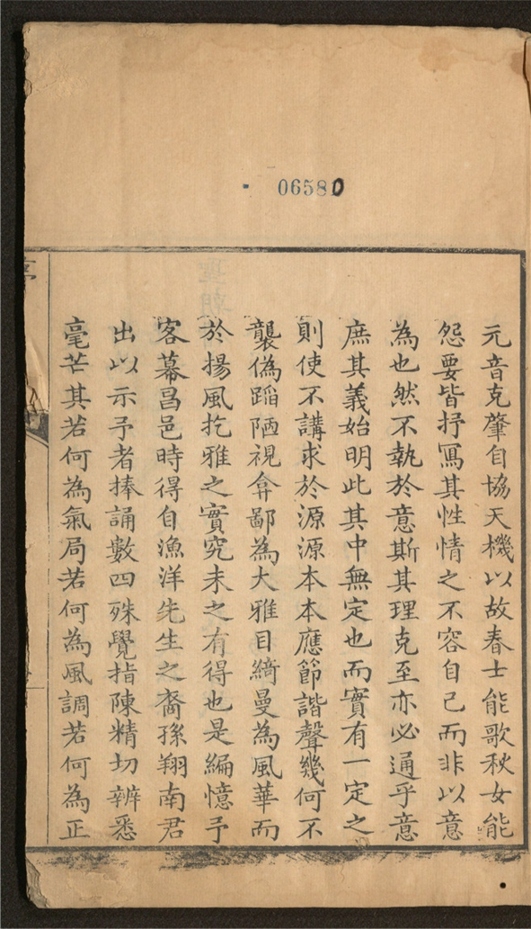 06580
元音克肇自協天機以故春士能歌秋女能
怨要皆抒寫其性情之不容自己而非以意
為也然不執於意斯其理克至亦必通乎意
庶其義始明此其中無定也而實有一定之
則使不講求於源源本本應節諧聲幾何不
襲偽蹈陋視弇鄙為大雅目綺曼為風華而
於揚風扢雅之實究未之有得也是編憶予
客幕昌邑時得自漁洋先生之裔孫翔南君
出以示予者捧誦數四殊覺指陳精切辨悉
毫芒其若何為氣局若何為風調若何為正